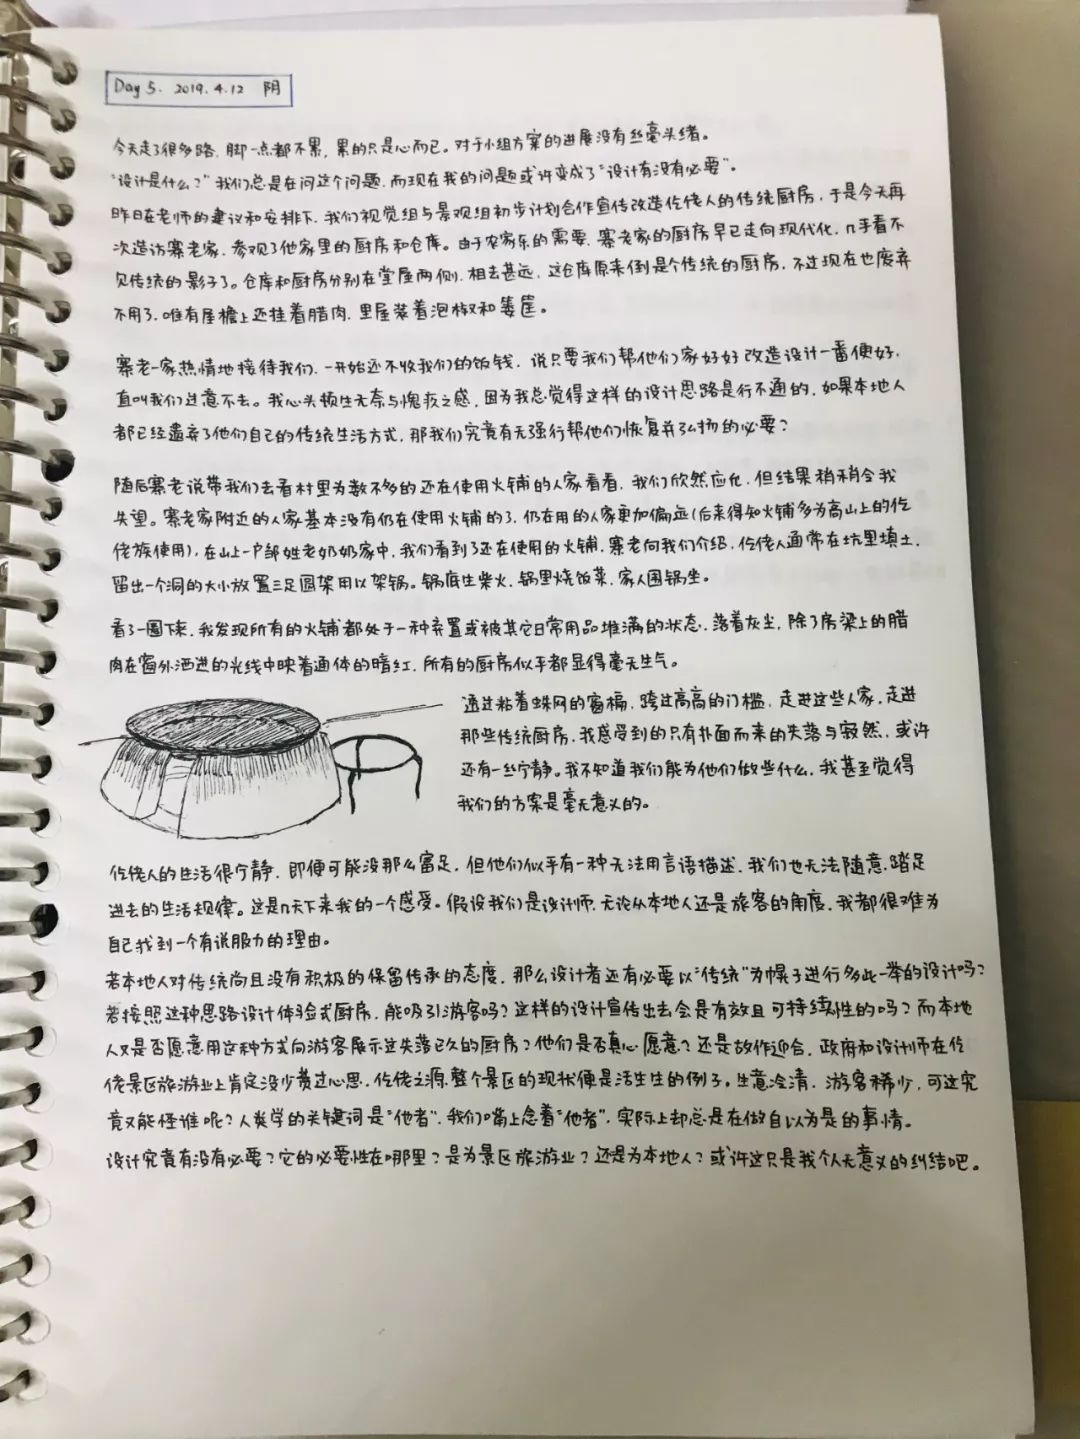 Day 5. 2019.4.12 阴
今天走了很多路，脚一点都不累，累的只是心而已。对于小组方案的进展没有丝毫头绪。
“设计是什么？”我们总是在问这个问题，而现在我的问题或许变成了“设计有没有必要”。
昨日在老师的建议和安排下，我们视觉组与景观组初步计划合作宣传改造仡佬人的传统厨房，于是今天再
次造访寨老家，参观了他家里的厨房和仓库。由于农家乐的需要，寨老家的厨房早已走向现代化，几乎看不
见传统的影子了。仓库和厨房分别在堂屋两侧，相去甚远，这仓库原来倒是个传统的厨房，不过现在也废弃
不用了，唯有屋檐上还挂着腊肉，里屋装着泡椒和篓筐。
寨老一家热情地接待我们，一开始还不收我们的饭钱，说只要我们帮他们家好好改造设计一番便好，
直叫我们过意不去。我心头顿生无奈与愧疚之感，因为我总觉得这样的设计思路是行不通的，如果本地人
都已经遗弃了他们自己的传统生活方式，那我们究竟有无强行帮他们恢复并弘扬的必要？
随后寨老说带我们去看村里为数不多的还在使用火铺的人家看看，我们欣然应允，但结果稍稍令我
失望。寨老家附近的人家基本没有仍在使用火铺的了，仍在用的人家更加偏远（后来得知火铺多为高山上的仡
佬族使用），在山上一户邹姓老奶奶家中，我们看到了还在使用的火铺，寨老向我们介绍，仡佬人通常在坑里填土，
留出一个洞的大小放置三足圆架用以架锅。锅底生柴火，锅里烧饭菜，家人围锅坐。
看了一圈下来，我发现所有的火铺都处于一种弃置或被其它日常用品堆满的状态，落着灰尘，除了房梁上的腊
肉在窗外洒进的光线中映着通体的暗红，所有的厨房似乎都显得毫无生气。
透过粘着蛛网的窗槅，跨过高高的门槛，走进这些人家，走进
那些传统厨房，我感受到的只有扑面而来的失落与寂然，或许
还有一丝宁静。我不知道我们能为他们做些什么，我甚至觉得
我们的方案是毫无意义的。
仡佬人的生活很宁静，即便可能没那么富足，但他们似乎有一种无法用言语描述，我们也无法随意踏足
进去的生活规律。这是几天下来我的一个感受。假设我们是设计师，无论从本地人还是旅客的角度，我都很难为
自己找到一个有说服力的理由。
若本地人对传统尚且没有积极的保留传承的态度，那么设计者还有必要以“传统”为幌子进行多此一举的设计吗？
若按照这种思路设计体验式厨房，能吸引游客吗？这样的设计宣传出去会是有效且可持续性的吗？而本地
人又是否愿意用这种方式向游客展示这失落已久的厨房？他们是否真心愿意？还是故作迎合，政府和设计师在仡
佬景区旅游业上肯定没少费过心思，仡佬之源整个景区的现状便是活生生的例子。生意冷清，游客稀少，可这究
竟又能怪谁呢？人类学的关键词是“他者”，我们嘴上念着“他者”，实际上却总是在做自以为是的事情。
设计究竟有没有必要？它的必要性在哪里？是为景区旅游业？还是为本地人？或许这只是我个人无意义的纠结吧。